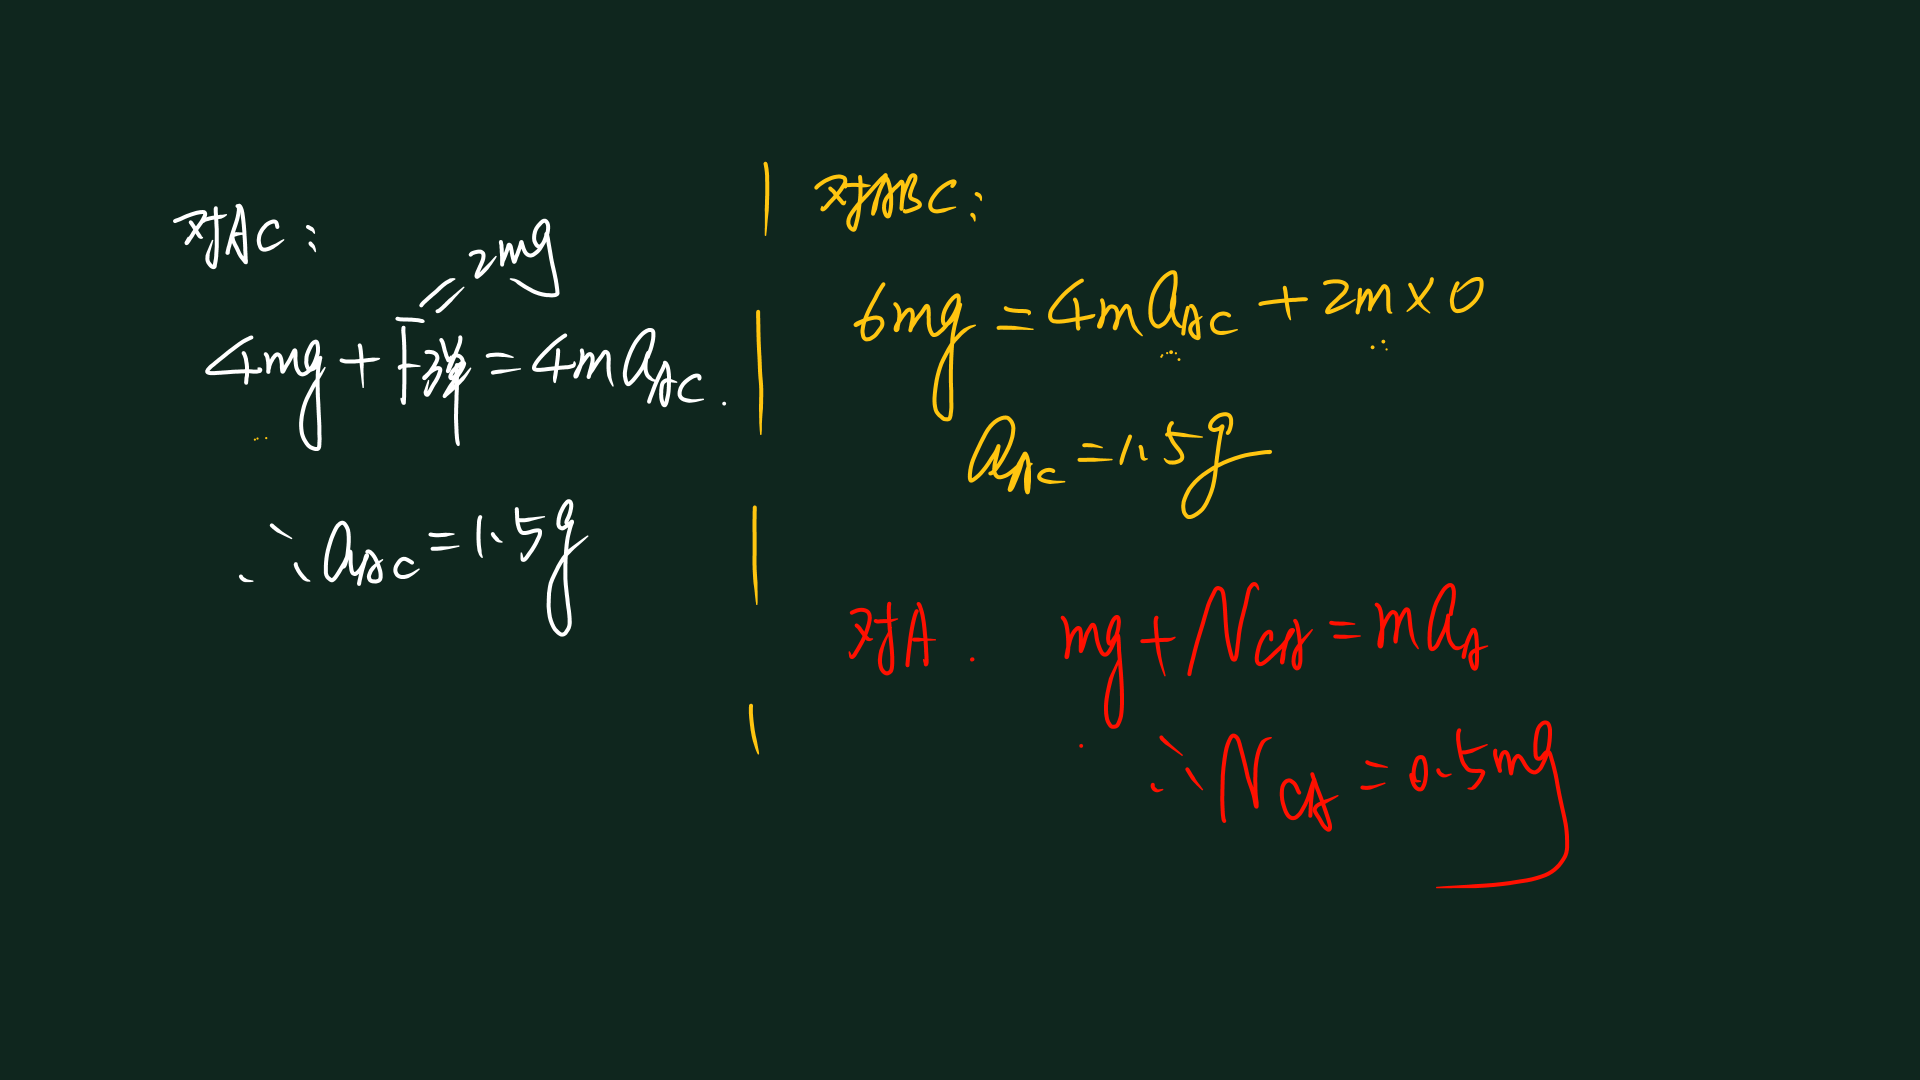 对AC：
=2mg
4mg+F弹=4ma_AC.
∴a_AC=1.5g
对ABC：
6mg=4ma_AC+2m×0
a_AC=1.5g
对A. mg+N_CA=ma_A
∴N_CA=0.5mg